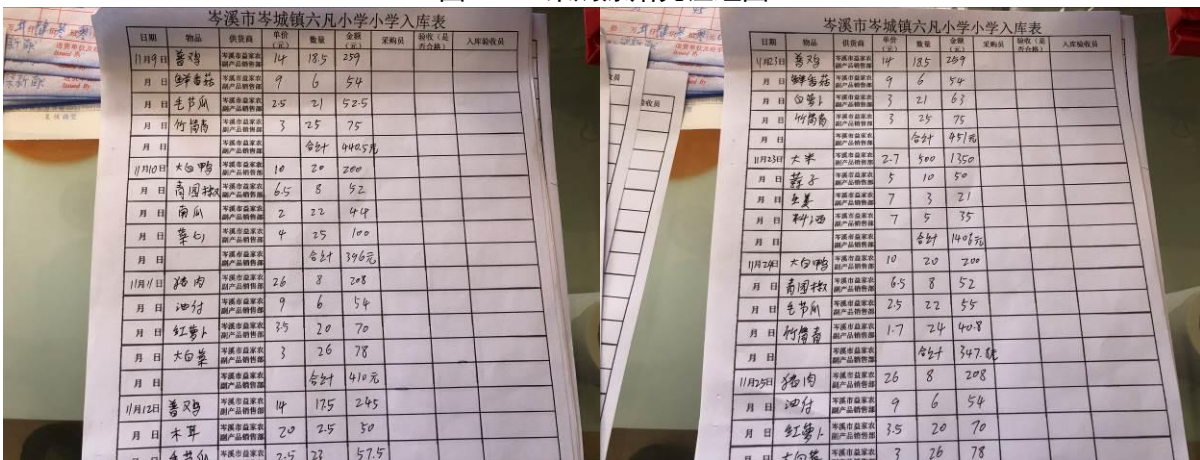 岑溪市岑城镇六凡小学小学入库表
日期 物品 供货商 单价（元） 数量 金额（元） 采购员 验收（是否合格） 入库验收员
11月9日 普鸡 岑溪市益家农副产品销售部 14 18.5 259
月 日 鲜香菇 岑溪市益家农副产品销售部 9 6 54
月 日 毛节瓜 岑溪市益家农副产品销售部 2.5 21 52.5
月 日 岑溪市益家农副产品销售部 3 25 75
月 日 岑溪市益家农副产品销售部 合计 440.5元
11月10日 大白鸭 岑溪市益家农副产品销售部 10 20 200
月 日 岑溪市益家农副产品销售部 6.5 8 52
月 日 南瓜 岑溪市益家农副产品销售部 2 22 44
月 日 菜心 岑溪市益家农副产品销售部 4 25 100
月 日 岑溪市益家农副产品销售部 合计 396元
11月11日 猪肉 岑溪市益家农副产品销售部 26 8 208
月 日 油付 岑溪市益家农副产品销售部 9 6 54
月 日 红萝卜 岑溪市益家农副产品销售部 3.5 20 70
月 日 大白菜 岑溪市益家农副产品销售部 3 26 78
月 日 岑溪市益家农副产品销售部 合计 410元
11月12日 普鸡 岑溪市益家农副产品销售部 14 17.5 245
月 日 木耳 岑溪市益家农副产品销售部 20 2.5 50
月 日 毛节瓜 岑溪市益家农 2.5 23 57.5
岑溪市岑城镇六凡小学小学入库表
日期 物品 供货商 单价（元） 数量 金额（元） 采购员 验收（是否合格） 入库验收员
11月23日 普鸡 岑溪市益家农副产品销售部 14 18.5 259
月 日 鲜香菇 岑溪市益家农副产品销售部 9 6 54
月 日 白萝卜 岑溪市益家农副产品销售部 3 21 63
月 日 岑溪市益家农副产品销售部 3 25 75
月 日 岑溪市益家农副产品销售部 合计 451元
11月23日 大米 岑溪市益家农副产品销售部 2.7 500 1350
月 日 岑溪市益家农副产品销售部 5 10 50
月 日 生姜 岑溪市益家农副产品销售部 7 3 21
月 日 料酒 岑溪市益家农副产品销售部 7 5 35
月 日 岑溪市益家农副产品销售部 合计
11月24日 大白鸭 岑溪市益家农副产品销售部 10 20 200
月 日 岑溪市益家农副产品销售部 6.5 8 52
月 日 毛节瓜 岑溪市益家农副产品销售部 2.5 22 55
月 日 岑溪市益家农副产品销售部 1.7 24 40.8
月 日 岑溪市益家农副产品销售部 合计
11月25日 猪肉 岑溪市益家农副产品销售部 26 8 208
月 日 油付 岑溪市益家农副产品销售部 9 6 54
月 日 红萝卜 岑溪市益家农副产品销售部 3.5 20 70
月 日 大白菜 岑溪市益家农 3 26 78